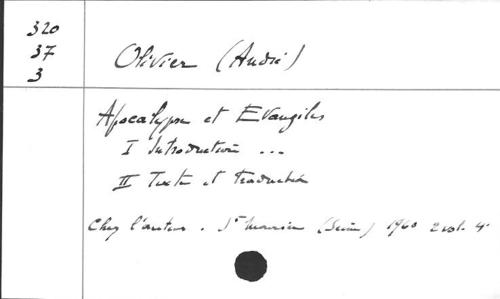 320
37
3
Olivier (André)
Apocalypse et Evangiles
I Introduction ...
II Texte et traduction
Chez l'auteur. St Maurice (Seine) 1960 2 vol. 4°